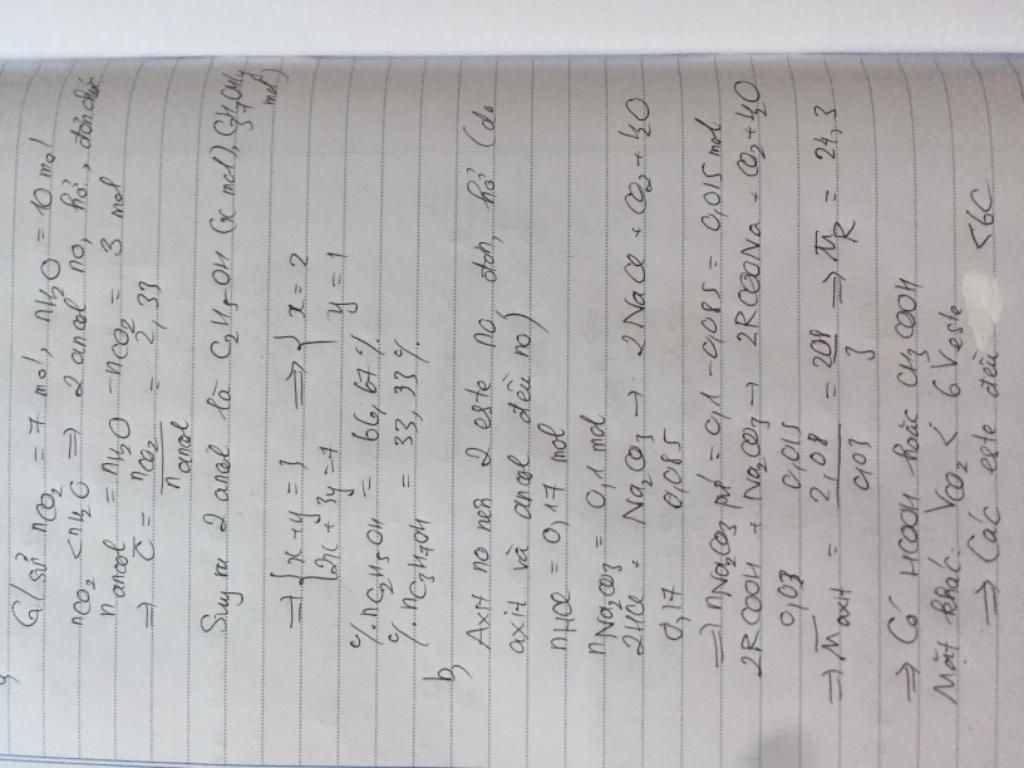 G/sử nCO2 = 7 mol, nH2O = 10 mol
nCO2 < nH2O ⇒ 2 ancol no, hở, đơn chức
nancol = nH2O - nCO2 = 3 mol
⇒ C̄ = nCO2 / nancol = 2,33
Suy ra 2 ancol là C2H5OH (x mol), C3H7OH (y mol)
⇒ { x + y = 3 ⇒ { x = 2
2x + 3y = 7 y = 1
%nC2H5OH = 66,67%
%nC3H7OH = 33,33%
b,
Axit no nên 2 este no, đơn, hở (do
axit và ancol đều no)
nHCl = 0,17 mol
nNa2CO3 = 0,1 mol
2HCl + Na2CO3 → 2NaCl + CO2 + H2O
0,17 0,085
⇒ nNa2CO3 pứ = 0,1 - 0,085 = 0,015 mol
2RCOOH + Na2CO3 → 2RCOONa + CO2 + H2O
0,03 0,015
⇒ M̄axit = 2,08 / 0,03 = 208 / 3 ⇒ M̄R = 24,3
⇒ Có HCOOH hoặc CH3COOH
Mặt khác: VCO2 < 6 Veste
⇒ Các este đều < 6C